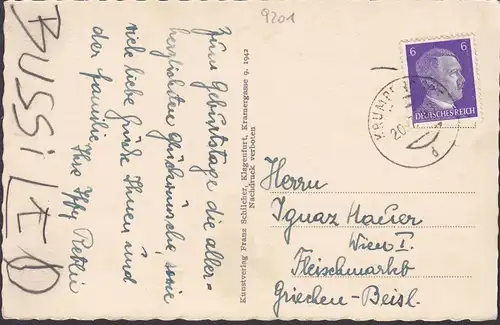 9201
Zum Geburtstage die aller-
herzlichsten Glückwünsche, sowie
viele liebe Grüße Ihnen und
der Familie
Ihre
BUSSI LEO
Kunstverlag Franz Schilcher, Klagenfurt, Kramergasse 9. 1942
Nachdruck verboten
6 6
DEUTSCHES REICH
KRUMPE
20.
d
Herrn
Ignaz Hauer
Wien I.
Fleischmarkt
Griechen-Beisl.